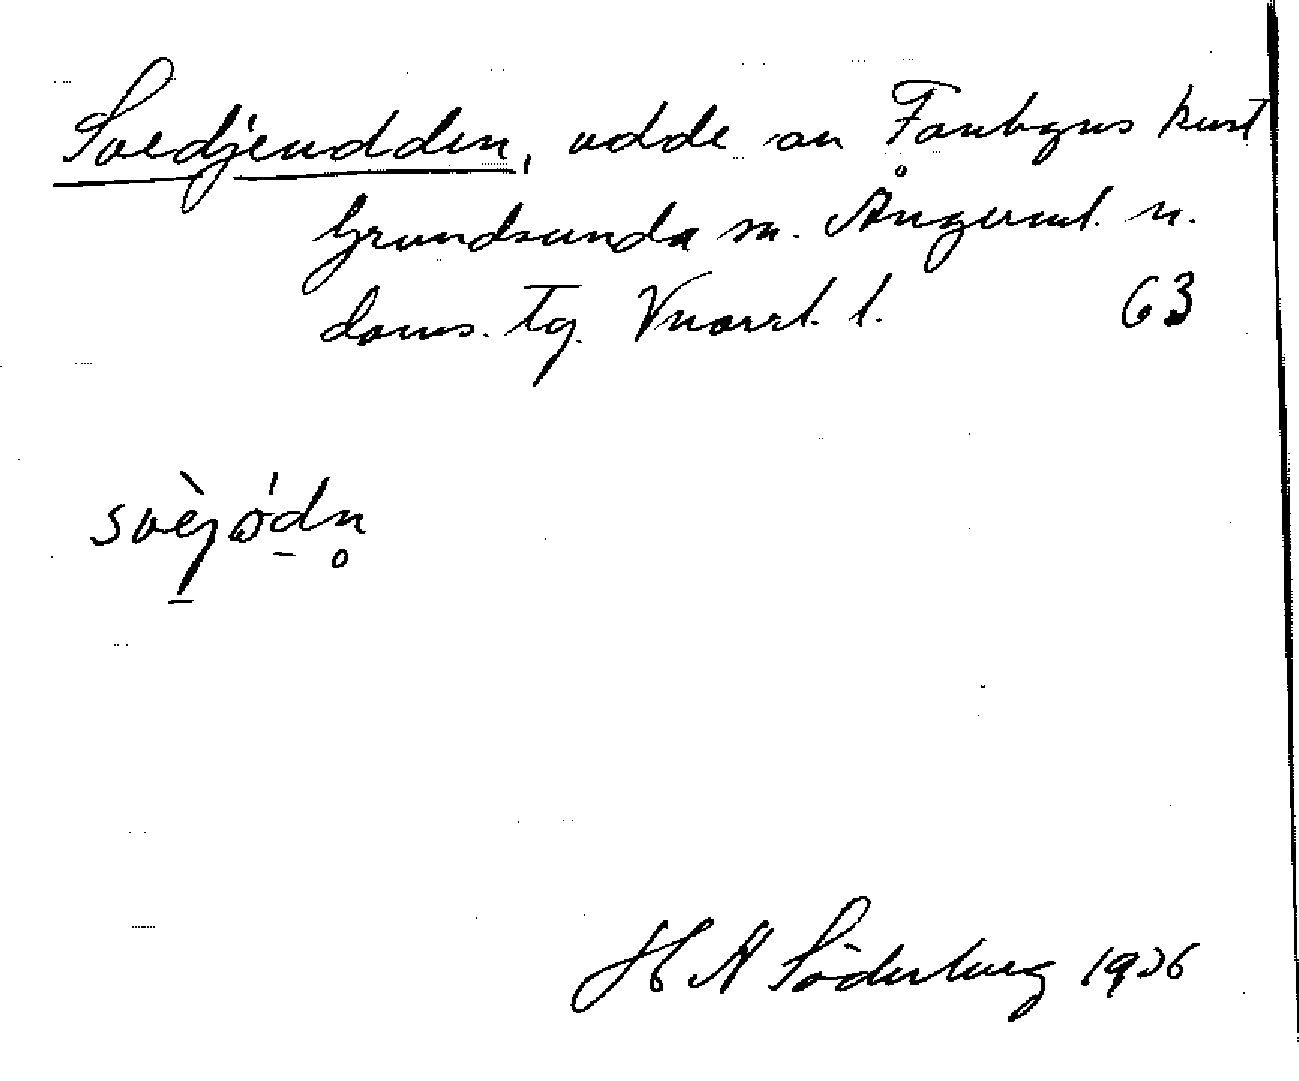 Svedjeudden, udde av Fanbyns kust
Grundsunda sn. Ångerml. n.
doms. Tg. l. 63
svèjødn
H A Söderberg 1926